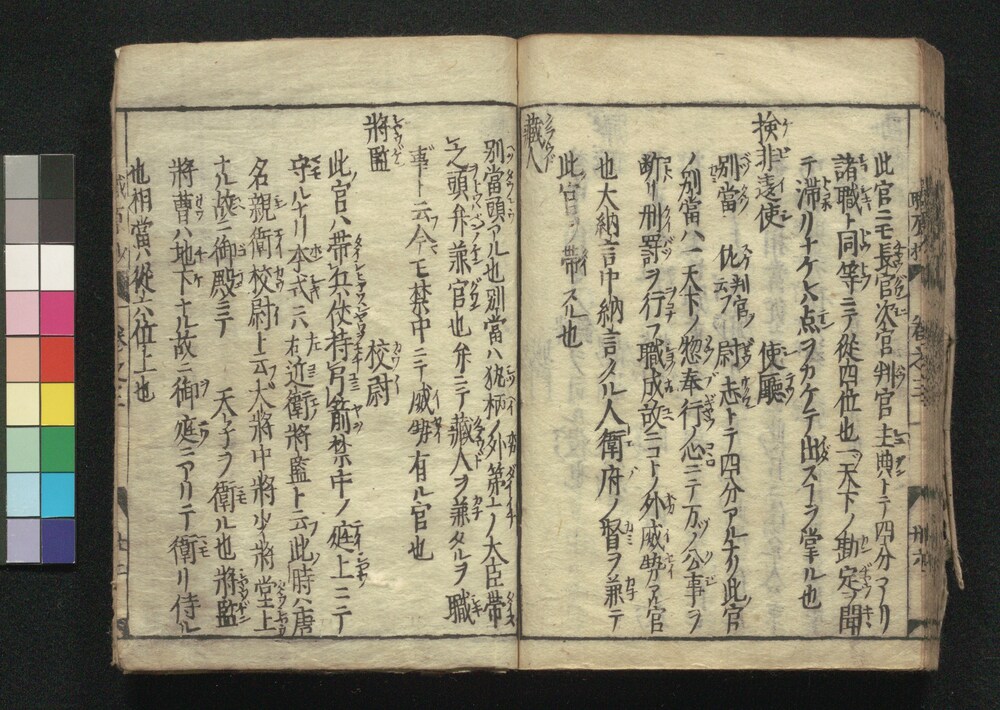 此官ニモ長官次官判官主典トテ四分アリ
諸職ト同等ニテ從四位也天下ノ勘定ヲ聞
テ滞リナケレハ点ヲカケテ出スヿヲ掌ル也
検非違使 使廳
別當 佐 判官 尉 志トテ四分アルナリ此官
ノ別當ハ天下ノ惣奉行ノ心ニテ万ノ公事ヲ
断リ刑罸ヲ行フ職成故ニコトノ外威勢アル官
也大納言中納言タル人衛府ノ督ヲ兼テ
此官ヲハ帯スル也
藏人
別當頭アル也別當ハ執柄ノ外第一ノ大臣帯
之頭弁兼官也弁ニテ藏人ヲ兼タルヲ職
事ト云今モ禁中ニテ威勢有ル官也
將監 校尉
此官ハ帯兵仗持弓箭禁中ノ庭上ニテ
守ルナリ本式ニハ左右近衛將監ト云此時ハ唐
名親衛校尉ト云大將中將少將堂上
ナル故ニ御殿ニテ 天子ヲ衛ル也將監
將曹ハ地下ナル故ニ御庭ニアリテ衛リ侍ル
也相當ハ從六位上也